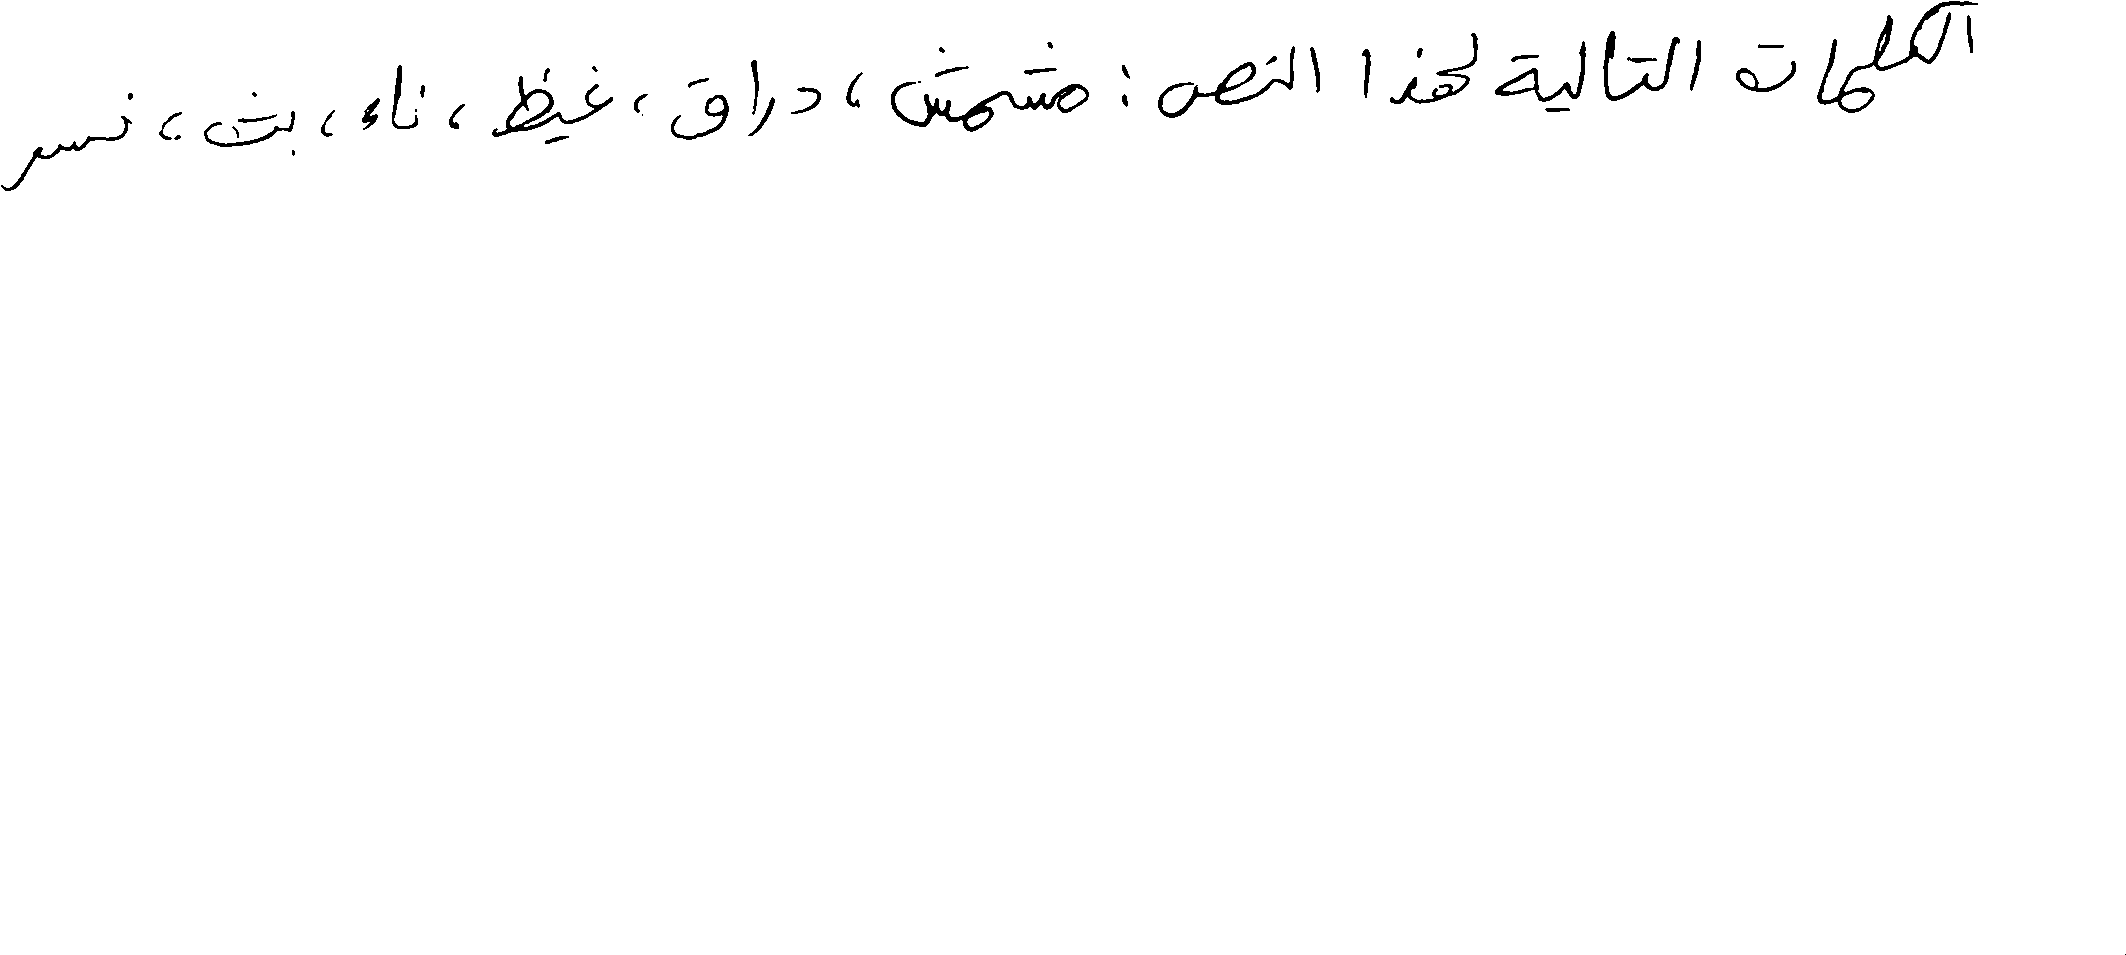 الكلمات التالية لهذا النص : مشمش ، دراق ، غيظ ، ناء ، بث ، نسر